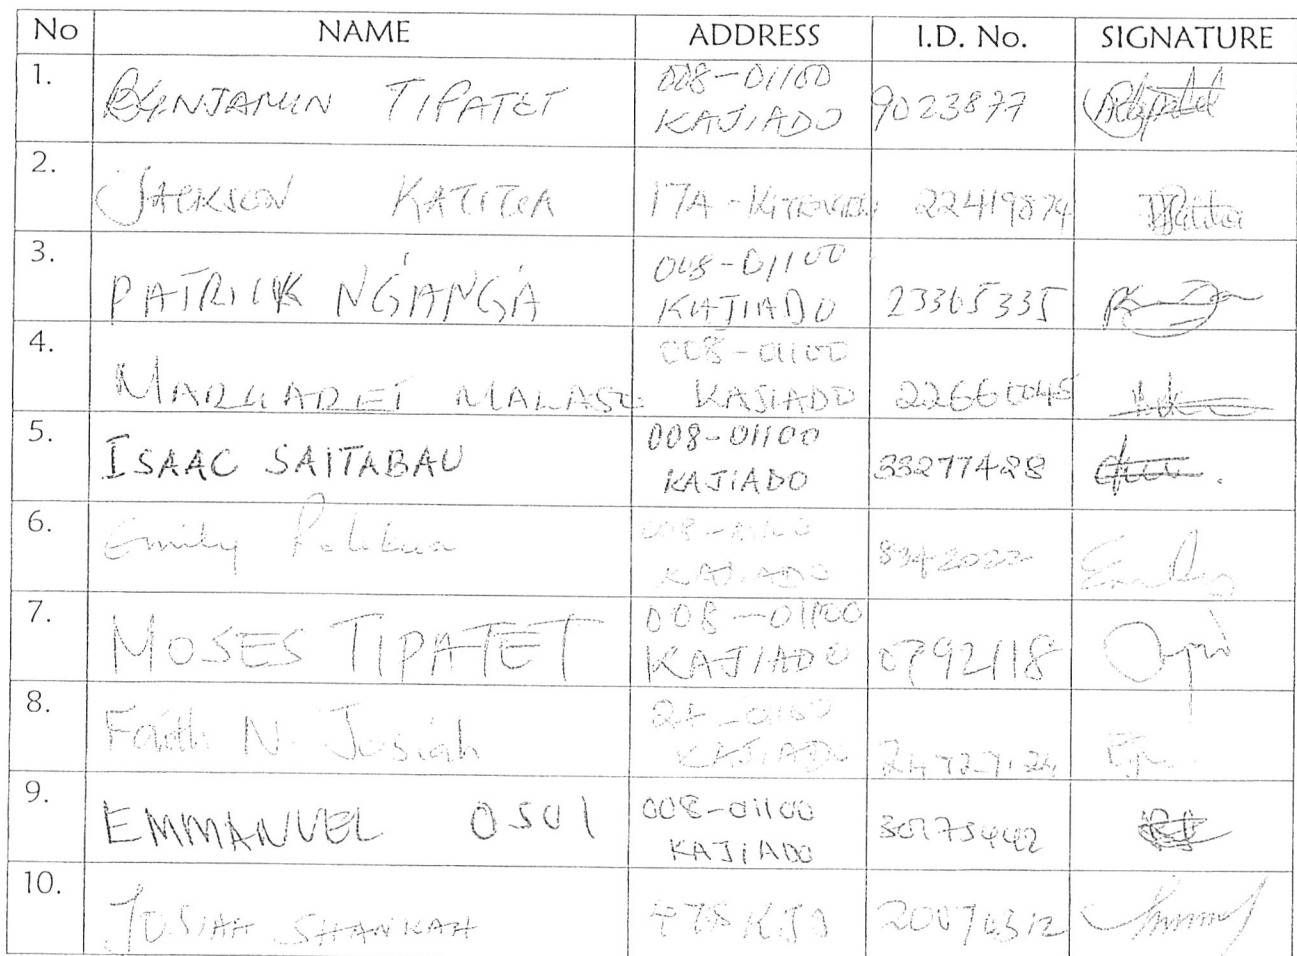 No NAME ADDRESS I.D. No. SIGNATURE
1. BENJAMIN TIPATET 008-01100 KAJIADO 9023877
2. JACKSON KATITIA 17A - 22419874
3. PATRICK NG'ANG'A 008-01100 KAJIADO 23365335
4. MARGARET MALASO 008-01100 KAJIADO
5. ISAAC SAITABAU 008-01100 KAJIADO 33277428
6. Emily 008-01100 KAJIADO 8342022
7. MOSES TIPATET 008-01100 KAJIADO
8. Faith N. Josiah KAJIADO
9. EMMANUEL OSOI 008-01100 KAJIADO
10. JOSIAH SHANKAH KJD